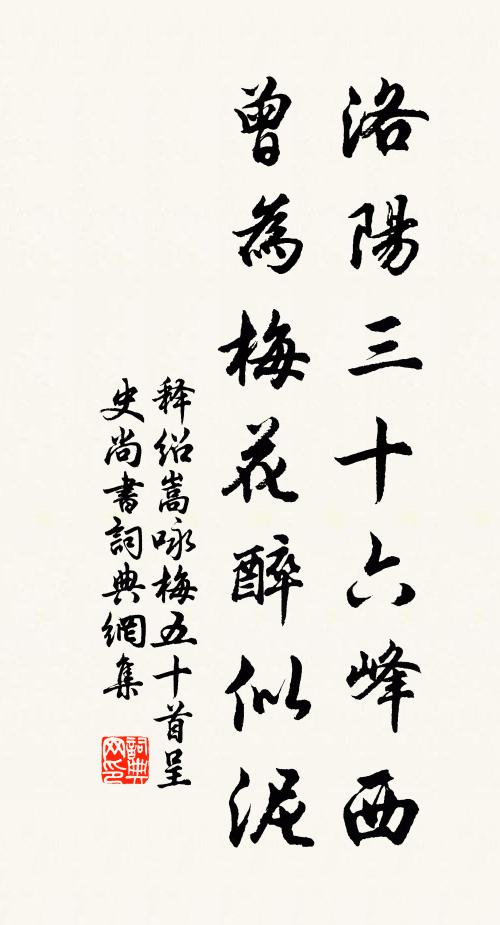 洛陽三十六峰西
曾為梅花醉似泥
释紹嵩咏梅五十首呈
史尚書詞典網集
詞典
网印